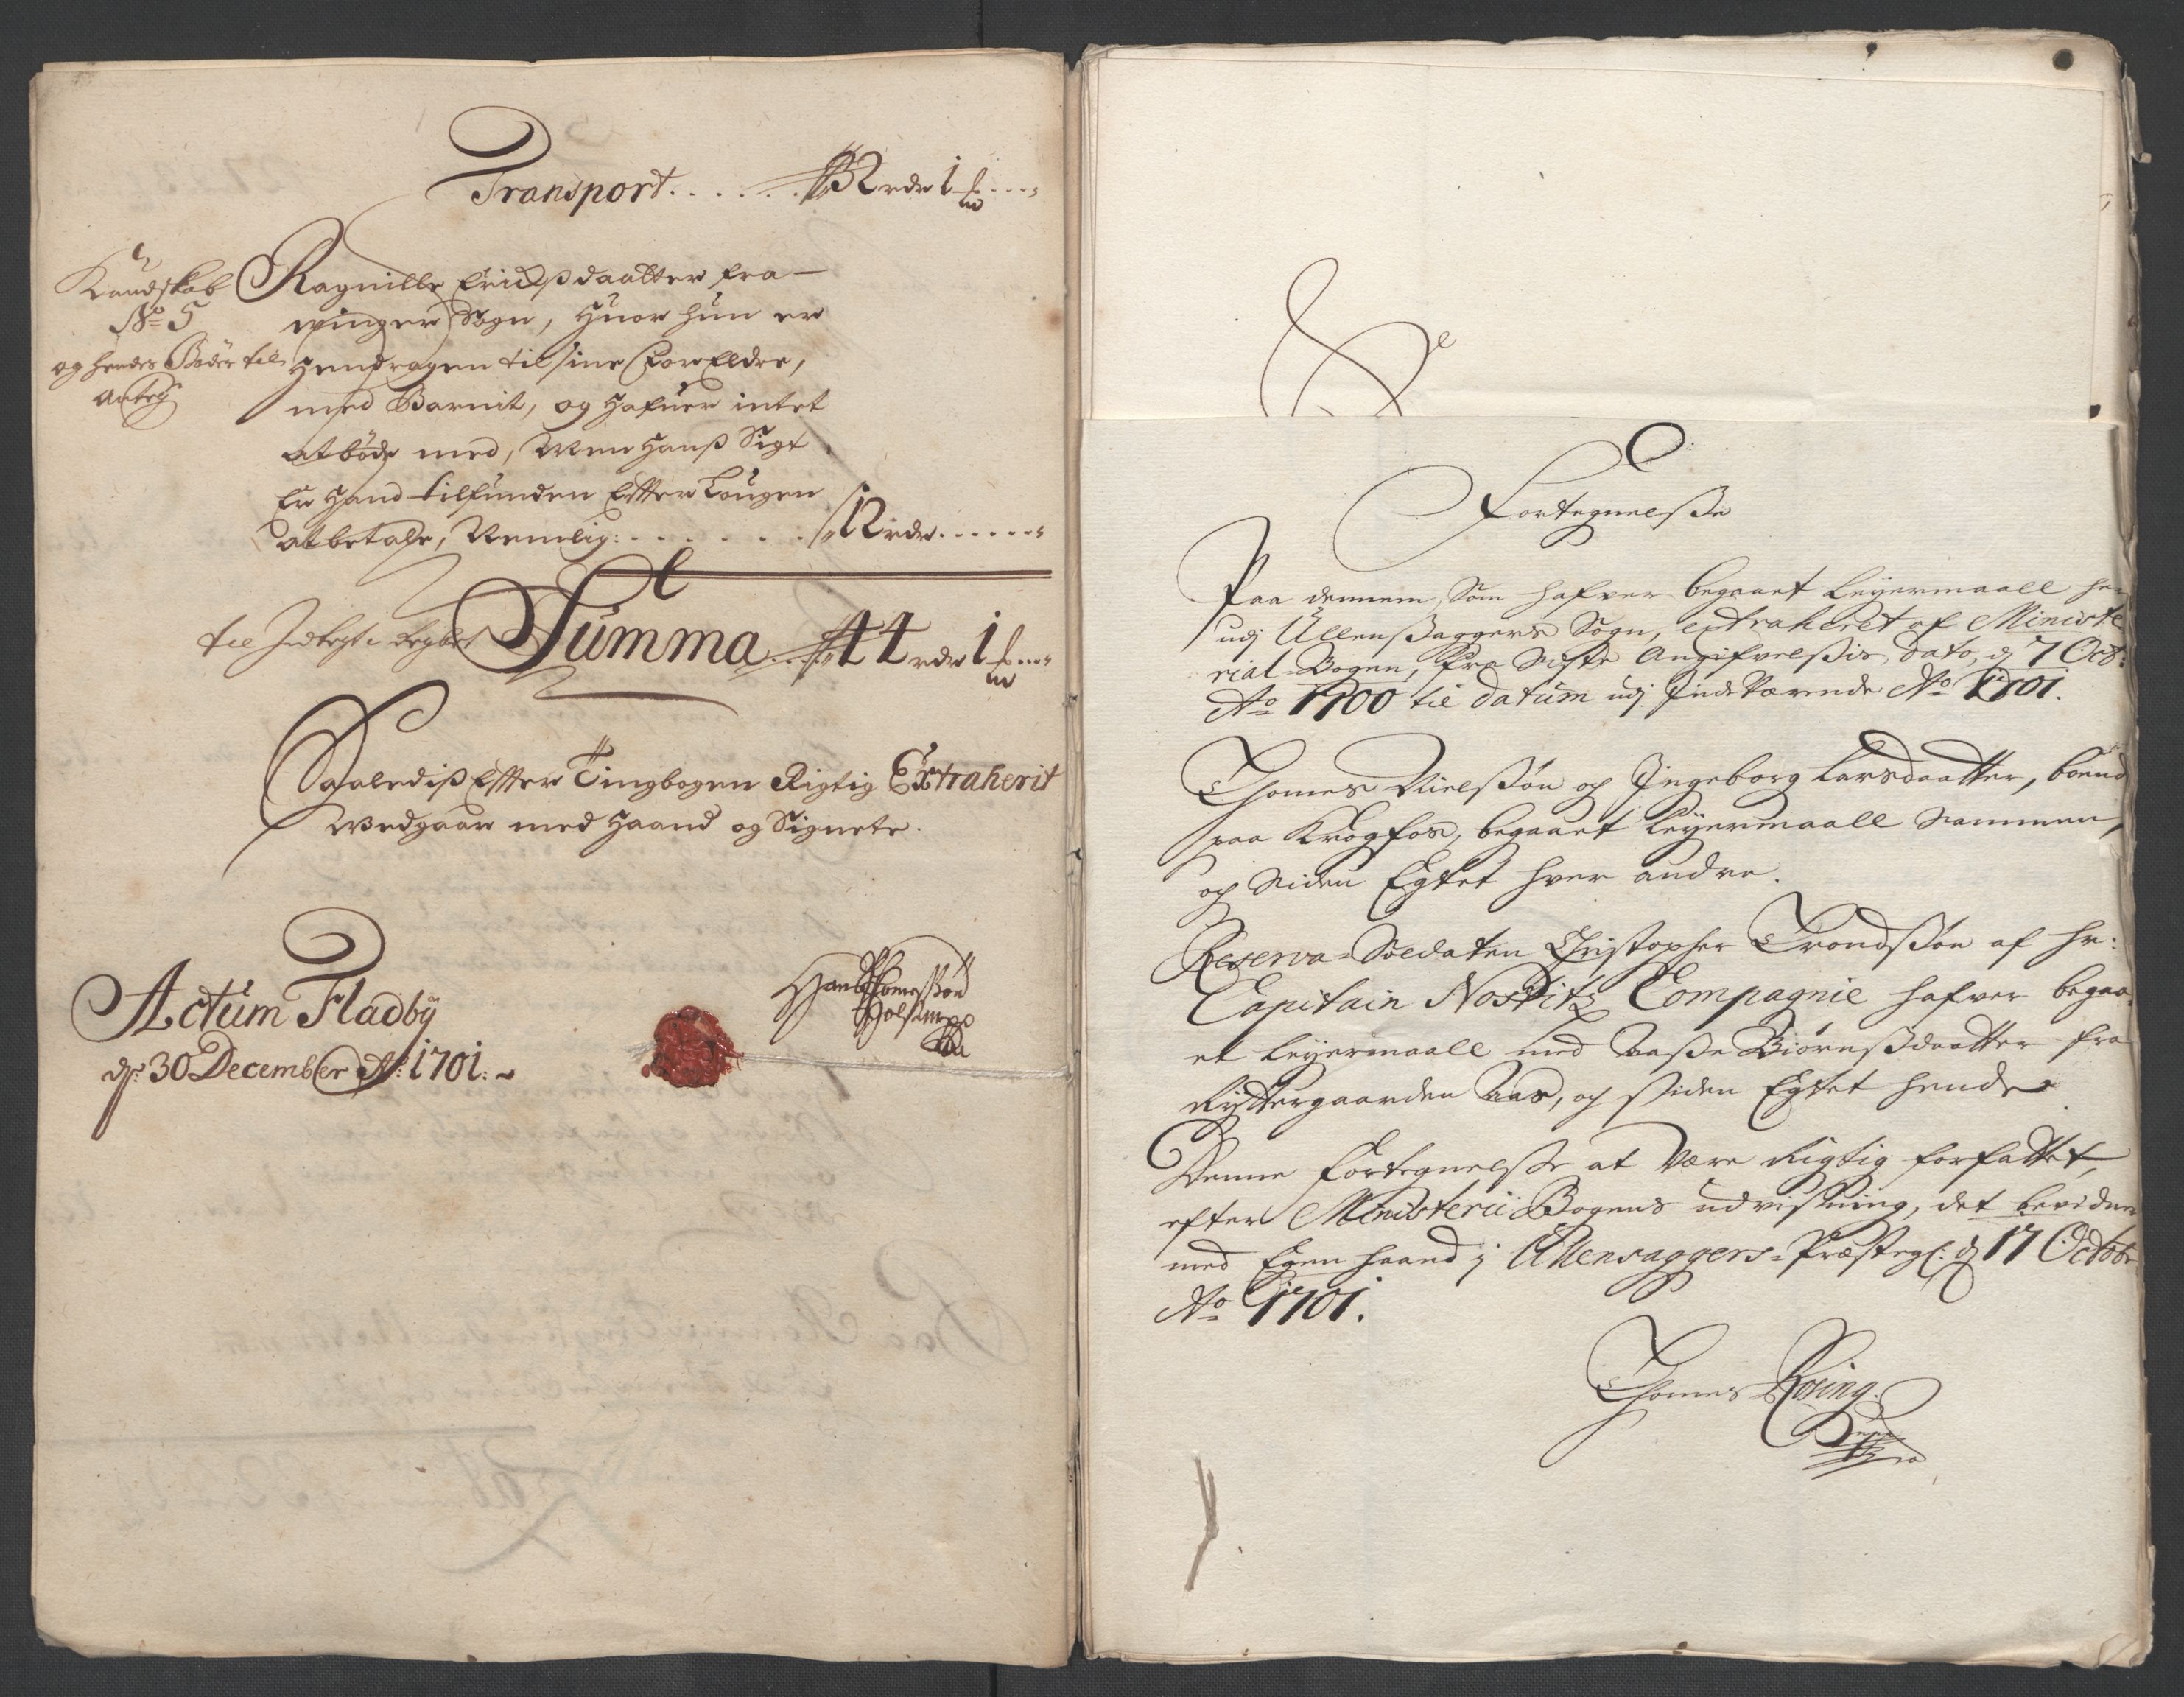 Transport. . . . . . 32 rdr 1 ℔ . . . .
Kundskab
No 5
og hendes Bøder til
Ragnille Erichsdaatter fra
winger Sogn, Huor hun er
hendragen til sine Forældre,
med Barnit, og hafuer intet
at bøde med, Men Hanß Sigt
Er Hand tilfunden Effter Lougen
at betale, Nemlig: . . . . . . 12 rdr . . . . . .
til Indtegt
Summa . . . 44 rdr 1 ℔ . . . .
Saalediß Effter Tingbogen Rigtig Extraherit
Wedgaar med Haand og Signete.
Actum Fladbÿ
ds: 30 December Ao: 1701. ~
Hanß Thomeßøn
Fortegnelße
Paa dennem, Som hafver begaaet leyermaall her
udj Ullensaggers Sogn, extraheret af Ministe
rial-Bogen, fra Siste Angifvelßis dato, dj 7 Oct:
Ao 1700 til datum udj Indeværende Ao 1701.
Thomes Nielßøn og Ingeborg Larsdaatter, boend
paa Krogfos, begaaet leyermaall sammen,
og siden Egtet hver andre.
Reserva-Soldaten Christopher Trondßøn af Hr:
Capitain Nostitz Compagnie hafver begaa-
et leyermaall med Aaße Biørnßdaatter fra
Ryttergaarden Aas, og siden Egtet hende
Denne Fortegnelße at være Rigtig forfattet,
efter Ministerii Bogens udvisning, det bevidner
med Egen haand j Ullensaggers-Præstegl: dj 17 Octobr
Ao 1701.
Thomes Rosing.